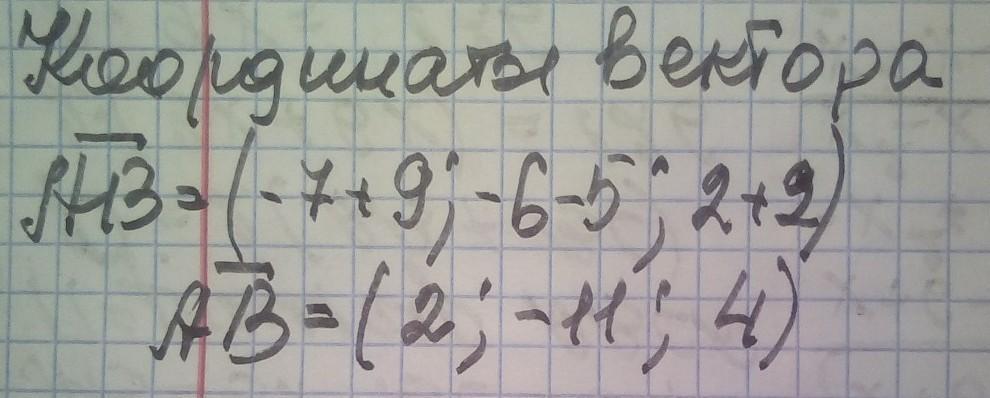 Координаты вектора
AB = (-7+9; -6-5; 2+2)
AB = (2; -11; 4)